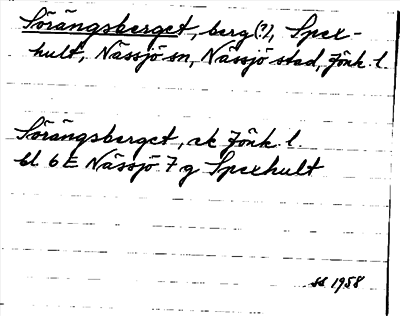 Sörängsberget, berg(?), Spex-
hult, Nässjö sn, Nässjö stad, Jönk. l.
Sörängsberget, ek Jönk. l.
bl 6E Nässjö 7 g Spexhult
ss 1958